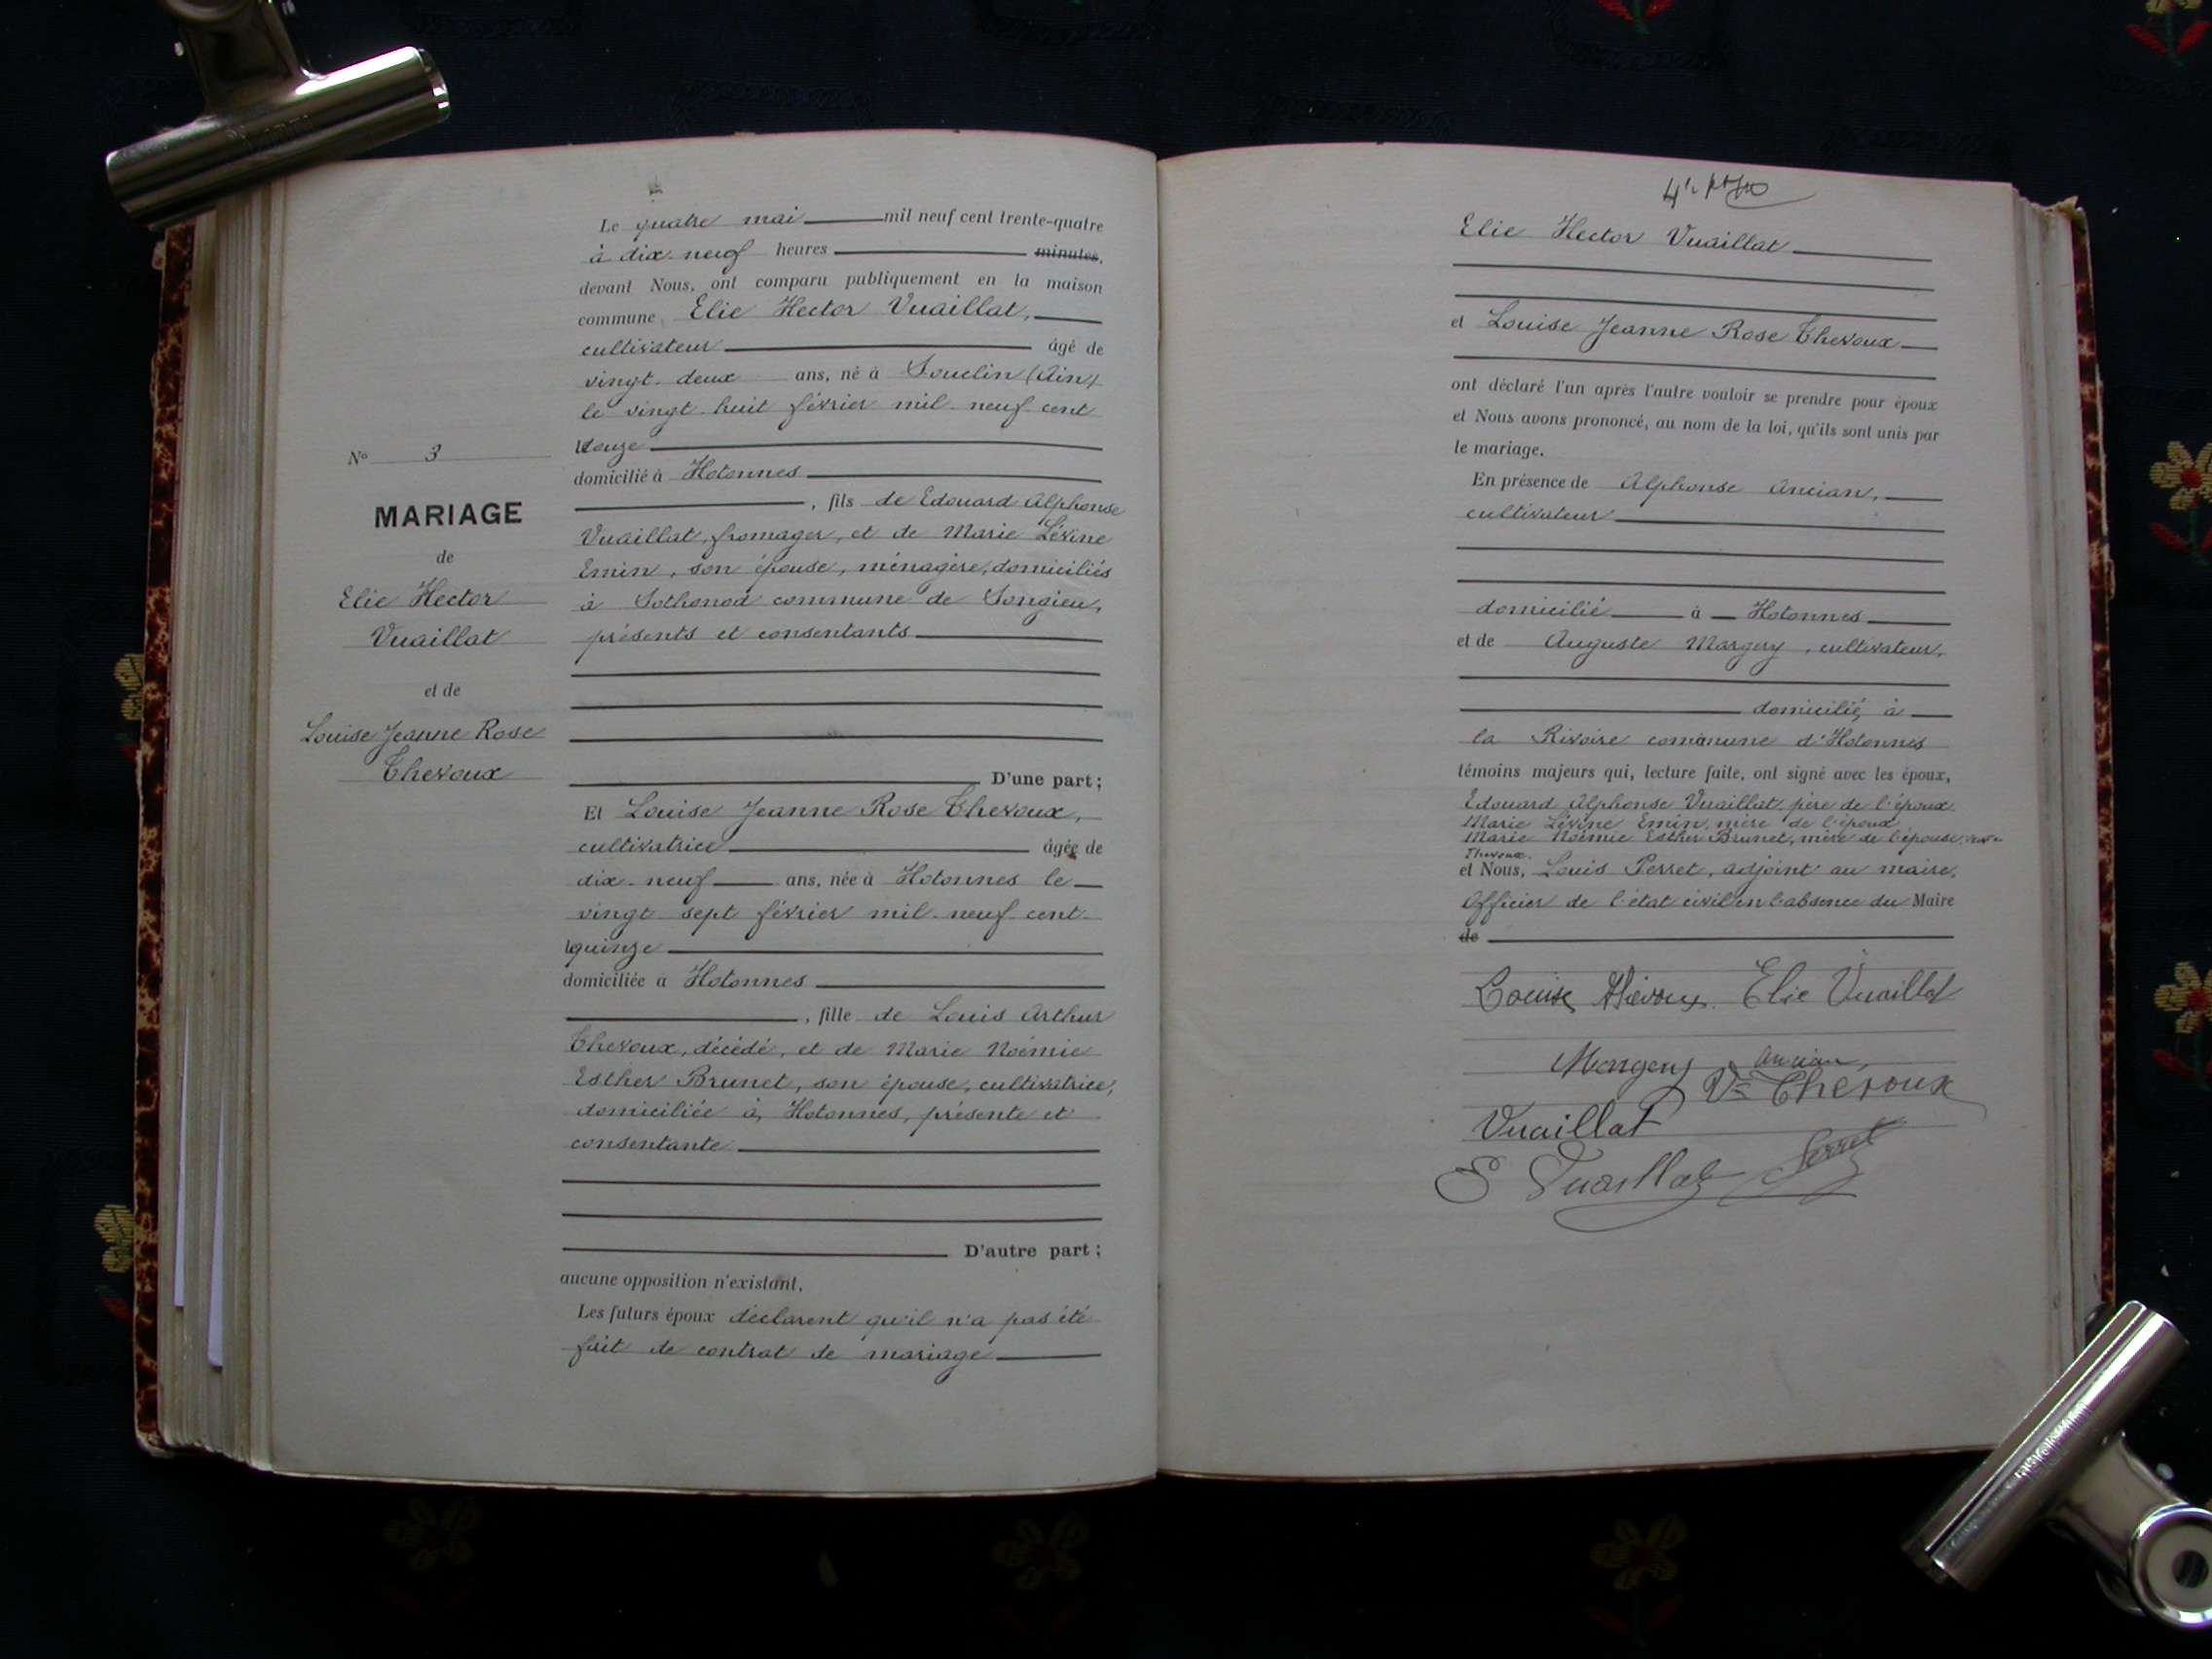 Le quatre mai mil neuf cent trente-quatre
à dix-neuf heures minutes,
devant Nous, ont comparu publiquement en la maison
commune Elie Hector Vuaillat,
cultivateur âgé de
vingt-deux ans, né à Souclin (Ain)
le vingt-huit février mil-neuf-cent
douze
domicilié à Hotonnes
, fils de Edouard Alphonse
Vuaillat, fromager, et de Marie Lévine
Emin, son épouse, ménagère, domiciliés
à Sothonod commune de Songieu,
présents et consentants
D'une part ;
Et Louise Jeanne Rose Thevoux,
cultivatrice âgée de
dix-neuf ans, née à Hotonnes le
vingt sept février mil-neuf-cent-
quinze
domiciliée à Hotonnes
, fille de Louis Arthur
Thevoux, décédé, et de Marie Noémie
Esther Brunet, son épouse, cultivatrice,
domiciliée à Hotonnes, présente et
consentante
D'autre part ;
aucune opposition n'existant.
Les futurs époux déclarent qu'il n'a pas été
fait de contrat de mariage
No 3
MARIAGE
de
Elie Hector
Vuaillat
et de
Louise Jeanne Rose
Thevoux
Elie Hector Vuaillat
et Louise Jeanne Rose Thevoux
ont déclaré l'un après l'autre vouloir se prendre pour époux
et Nous avons prononcé, au nom de la loi, qu'ils sont unis par
le mariage.
En présence de Alphonse Ancian,
cultivateur
domicilié à Hotonnes
et de Auguste Margery, cultivateur,
domicilié à
la Rivoire commune d'Hotonnes
témoins majeurs qui, lecture faite, ont signé avec les époux,
Edouard Alphonse Vuaillat, père de l'époux
Marie Lévine Emin, mère de l'époux
Marie Noémie Esther Brunet, mère de l'épouse,
Thevoux.
et Nous, Louis Perret, adjoint au maire,
Officier de l'état civil en l'absence du Maire
de
Louise Thévoux. Elie Vuaillat
Margery Ancian,
Vve Thevoux
Vuaillat
E Vuaillat Perret